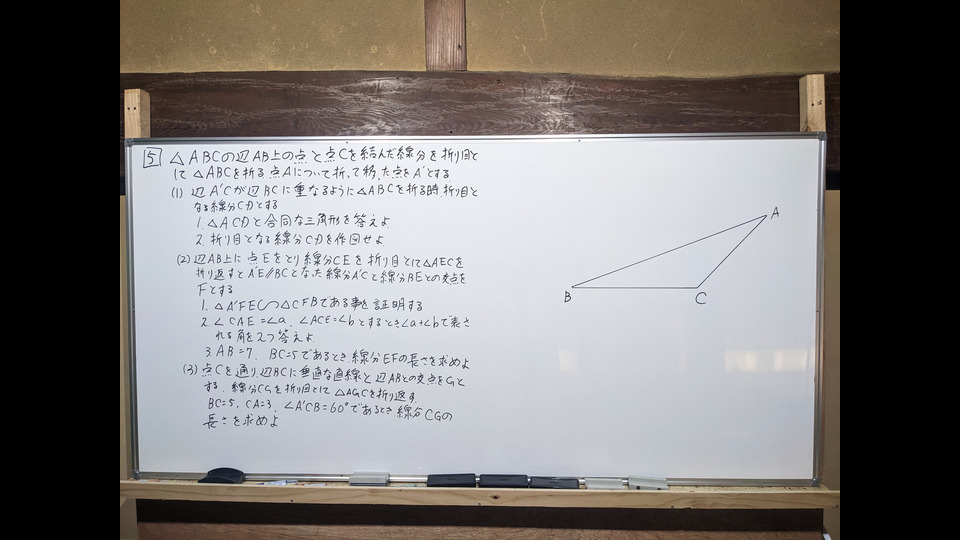 5 △ABCの辺AB上の点と点Cを結んだ線分を折り目と
して△ABCを折る点Aについて折って移った点をA'とする
(1) 辺A'Cが辺BCに重なるように△ABCを折る時、折り目と
なる線分CDとする
1. △ACDと合同な三角形を答えよ
2. 折り目となる線分CDを作図せよ
(2) 辺AB上に点Eをとり線分CEを折り目として△AECを
折り返すとA'E//BCとなった線分A'Cと線分BEとの交点を
Fとする
1. △A'FE∽△CFBである事を証明する
2. ∠CAE=∠a、∠ACE=∠bとするとき∠a+∠bで表さ
れる角を2つ答えよ
3. AB=7、BC=5であるとき線分EFの長さを求めよ
(3) 点Cを通り辺BCに垂直な直線と辺ABとの交点をGと
する。線分CGを折り目として△AGCを折り返す
BC=5、CA=3、∠A'CB=60°であるとき線分CGの
長さを求めよ
A
B
C